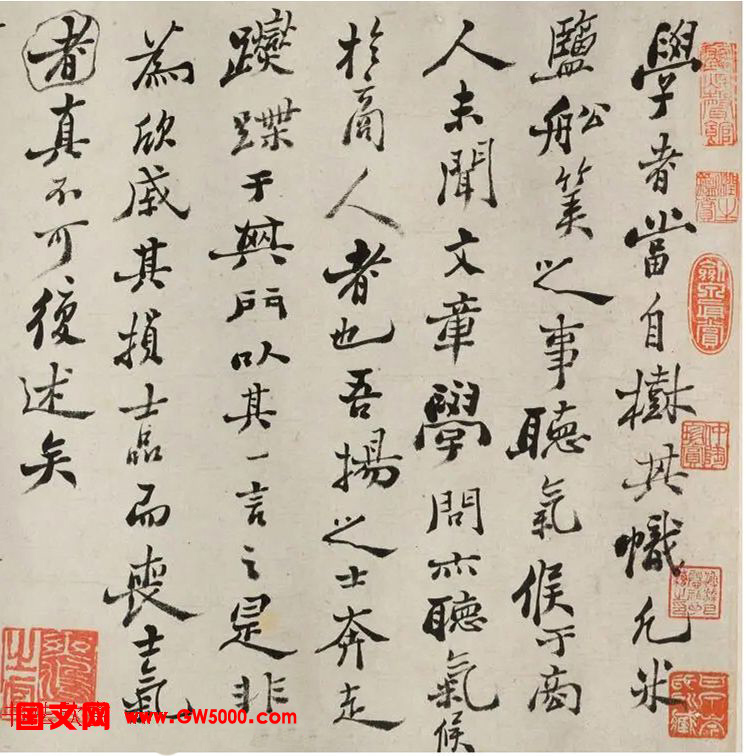 學者當自樹其幟凡米
鹽船筭之事聽氣候于商
人未聞文章學問亦聽氣候
於商人者也吾揚之士奔走
躞蹀于其門以其一言之是非
為欣戚其損士品而喪士氣
者真不可復述矣
国文网 www.GW5000.com